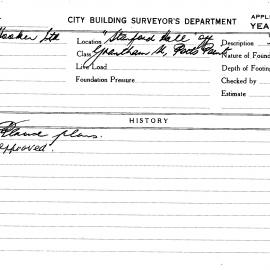 CITY BUILDING SURVEYOR'S DEPARTMENT
APPL
YEA
Ltd
Location "Stanford Hall" off
Description
Class Grantham St, Potts Point
Nature of Found
Live Load
Depth of Footing
Foundation Pressure
Checked by
Estimate
HISTORY
plans.
approved.